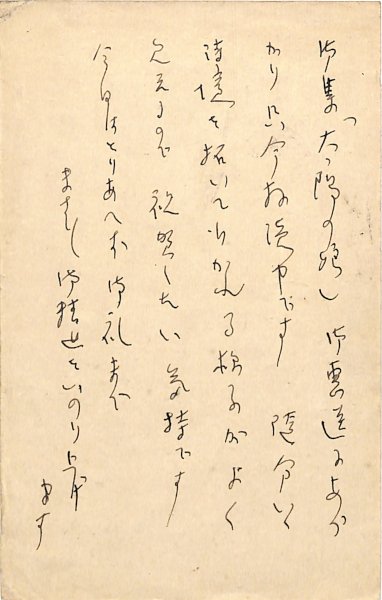 御集「太陽の娘」御恵送にあづ
かり只今拝読中です 随分いゝ
詩境を拓いてゆかれる様子がよく
見えるので 祝賀したい気持です
今日はとりあへず御礼まで
ます〱御精進をいのり上げ
ます